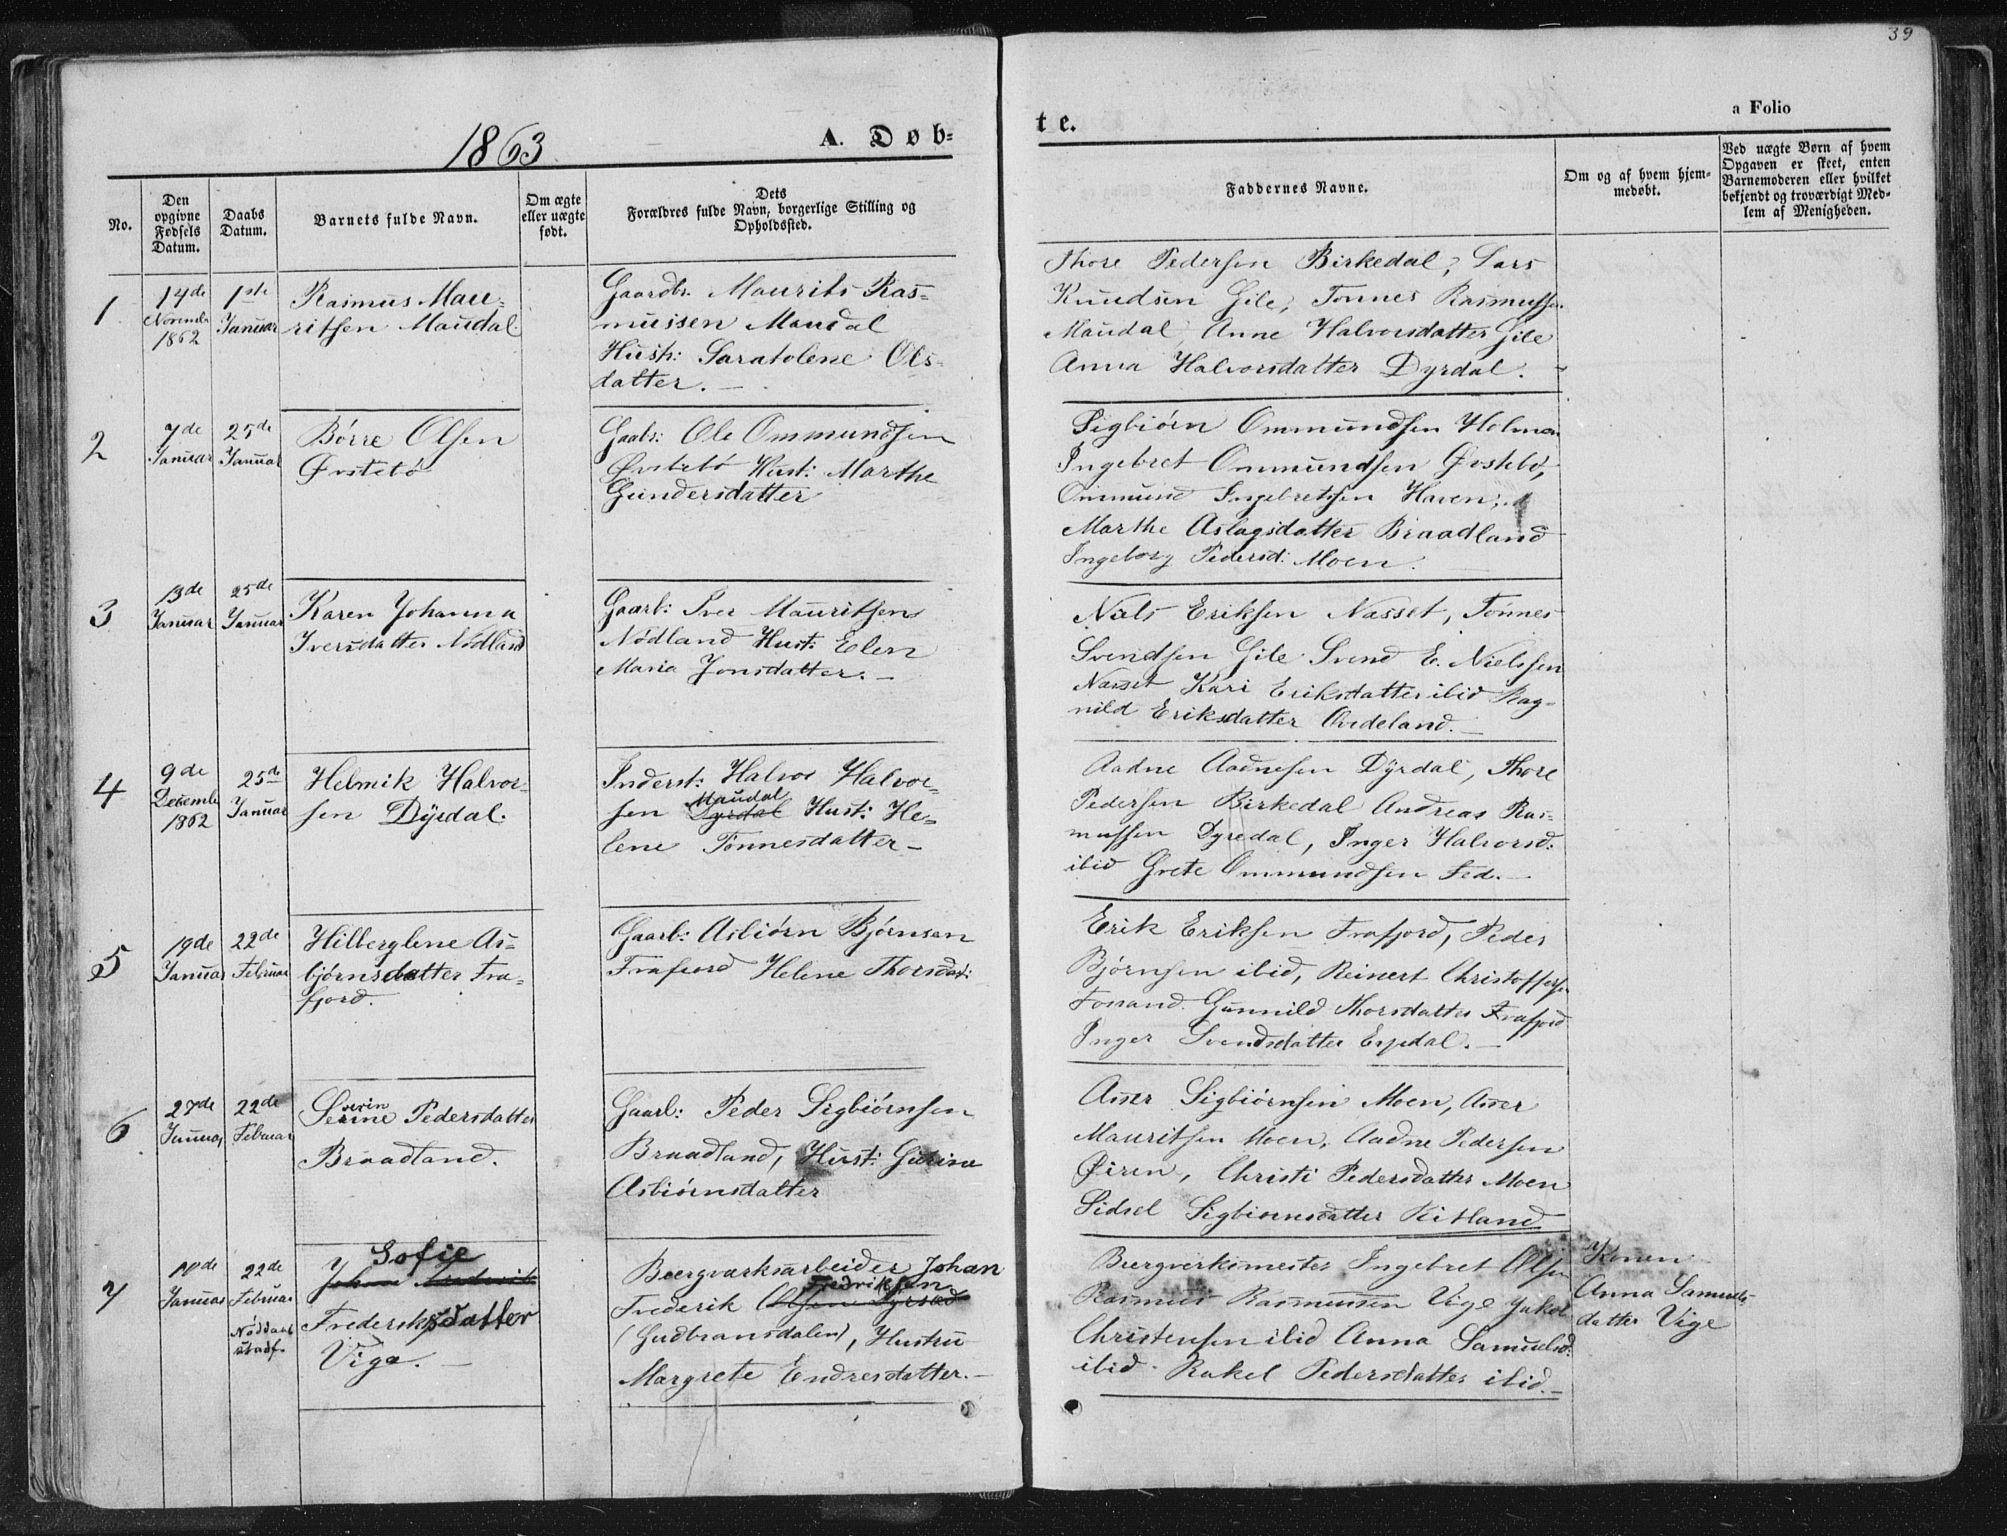 39
1863
A. Døb-
te.
a Folio
No.
Den opgivne Fødsels Datum.
Daabs Datum.
Barnets fulde Navn.
Om ægte eller uægte født.
Dets Forældres fulde Navn, borgerlige Stilling og Opholdssted.
Faddernes Navne.
Om og af hvem hjemmedøbt.
Ved uægte Børn af hvem Opgaven er skeet, enten Barnemoderen eller hvilket bekjendt og troværdigt Medlem af Menigheden.
1
14de
Novemb
1862
1ste
Januar
Rasmus Mau-
ritsen Maudal.
Gaardbr. Maurits Ras-
mussen Maudal
Hustr: Saratolene Ols-
datter. —
Thore Pedersen Birkedal, Lars
Knudsen Gile, Tønnes Rasmussen
Maudal, Anne Halvorsdatter Gile
Anna Halvorsdatter Dyrdal.
2
7de
Januar
25de
Januar
Børre Olsen
Øvstebø
Gaab: Ole Ommundsen
Øvstebø Hust: Marthe
Gundersdatter
Sigbiørn Ommundsen Holmen
Ingebret Ommundsen Øvstebø,
Ommund Ingebretsen Haven,
Marthe Aslagsdatter Braadland
Ingeborg Pedersd: Moen.
3
13de
Januar
25de
Januar
Karen Johanna
Iversdatter Nødland
Gaarb: Iver Mauritsen
Nødland Hust: Elen
Maria Jonsdatter. —
Niels Eriksen Næsset, Tønnes
Svendsen Gile Svend E. Nielsen
Næsset Kari Eriksdatter ibid Rag-
nild Eriksdatter Ovedeland. —
4
9de
Decemb
1862
25de
Januar
Helmik Halvor-
sen Dyrdal.
Inderst: Halvor Halvor-
sen Dyrdal Maudal Hust: He-
lene Tønnesdatter —
Aadne Aadnesen Dyrdal, Thore
Pedersen Birkedal Andreas Ras-
mussen Dyredal, Inger Halvorsd:
ibid Grete Ommundsen Fed. —
5
19de
Januar
22de
Februar
Hilberglene As-
bjørnsdatter Fra-
fjord.
Gaarb: Asbiørn Bjørnsen
Frafjord Helene Thorsdat:
Erik Eriksen Frafjord, Peder
Bjørnsen ibid, Reinert Christoffersen
Fossand Gunnild Thorsdatter Frafjord
Inger Svendsdatter Eikedal. —
6
27de
Januar
22de
Februar
Serine Pedersdatter
Braadland.
Gaarb: Peder Sigbiørnsen
Braadland, Hust: Gurine
Asbiørnsdatter
Asser Sigbiørnsen Moen, Asser
Mauritsen Moen, Aadne Pedersen
Øiren, Christi Pedersdatter Moen
Sidsel Sigbiørnsdatter Kitland
7
Januar
22de
Februar
Sofie
Frederiksdatter
Vige. —
Beergværksarbeider Johan
Frederik Fredriksen
(Gudbransdalen), Hustru
Margrete Endresdatter. —
Beergverksmester Ingebret Olsen
Rasmus Rasmussen Vige Jakob
Christensen ibid Anna Samuelsd:
ibid. Rakel Pedersdatter ibid. —
Konen
Anna Samuels-
datter Vige